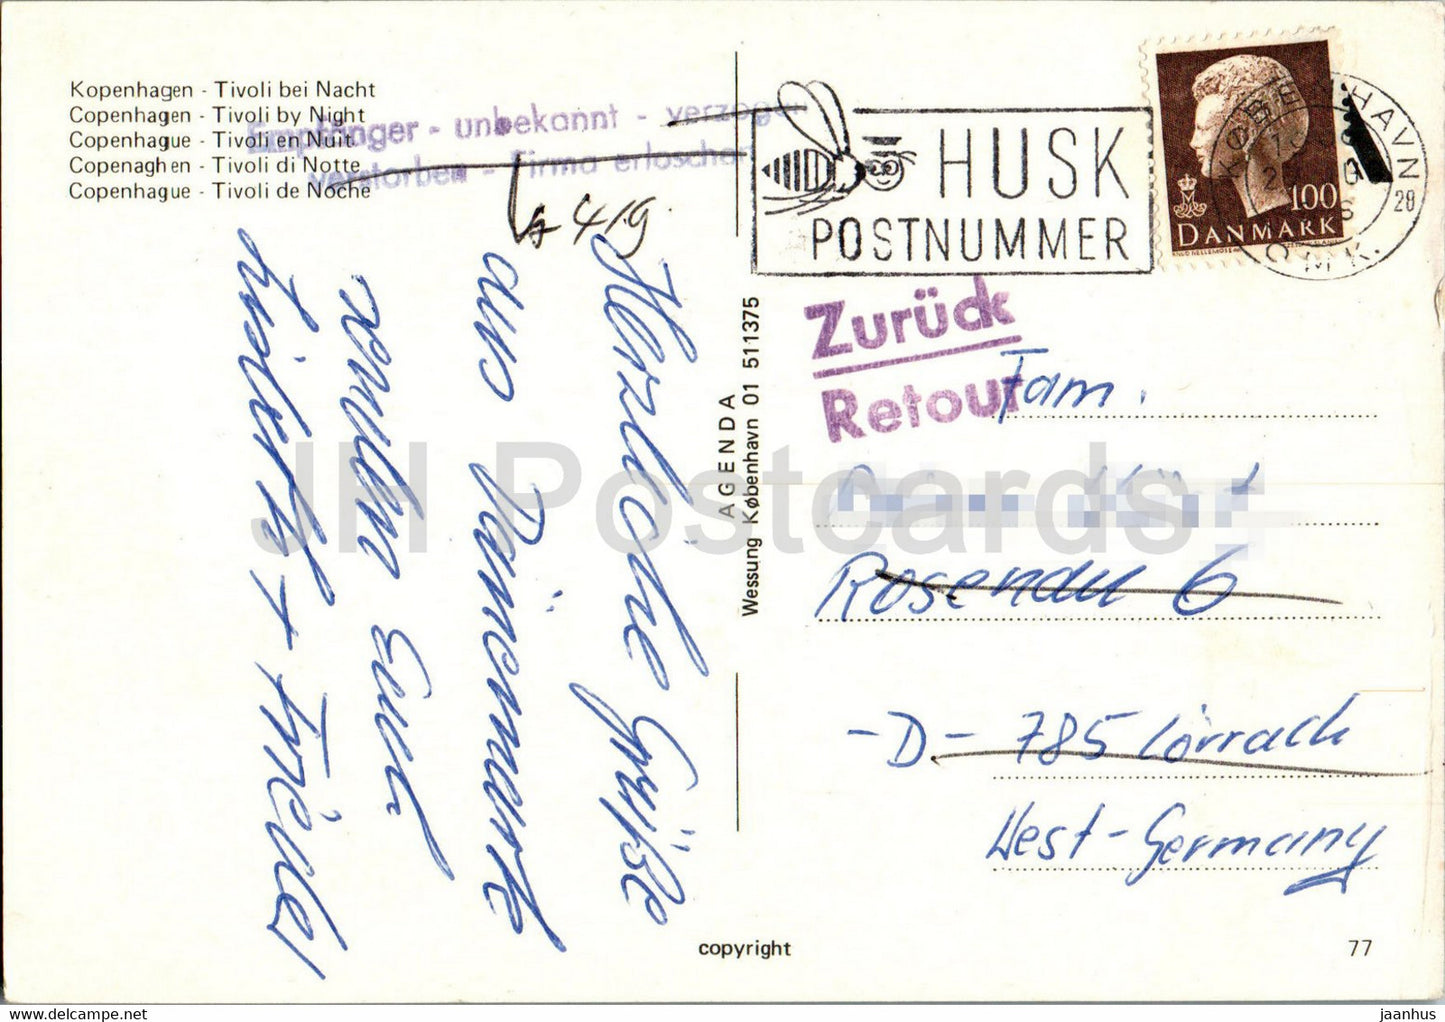 Kopenhagen - Tivoli bei Nacht
Copenhagen - Tivoli by Night
Copenhague - Tivoli en Nuit
Copenaghen - Tivoli di Notte
Copenhague - Tivoli de Noche
Empfänger - unbekannt - verzogen
verstorben - Firma erloschen
419
HUSK
POSTNUMMER
KØBENHAVN
OMK.
28
100
DANMARK
Zurück
Retour
Herzliche Grüße
aus Dänemark
Euch
AGENDA
Wessung København 01 511375
Fam.
Rosenau 6
-D- 785 Lörrach
West-Germany
copyright
77
JH Postcards
www.hippostcard.com
jaanhus